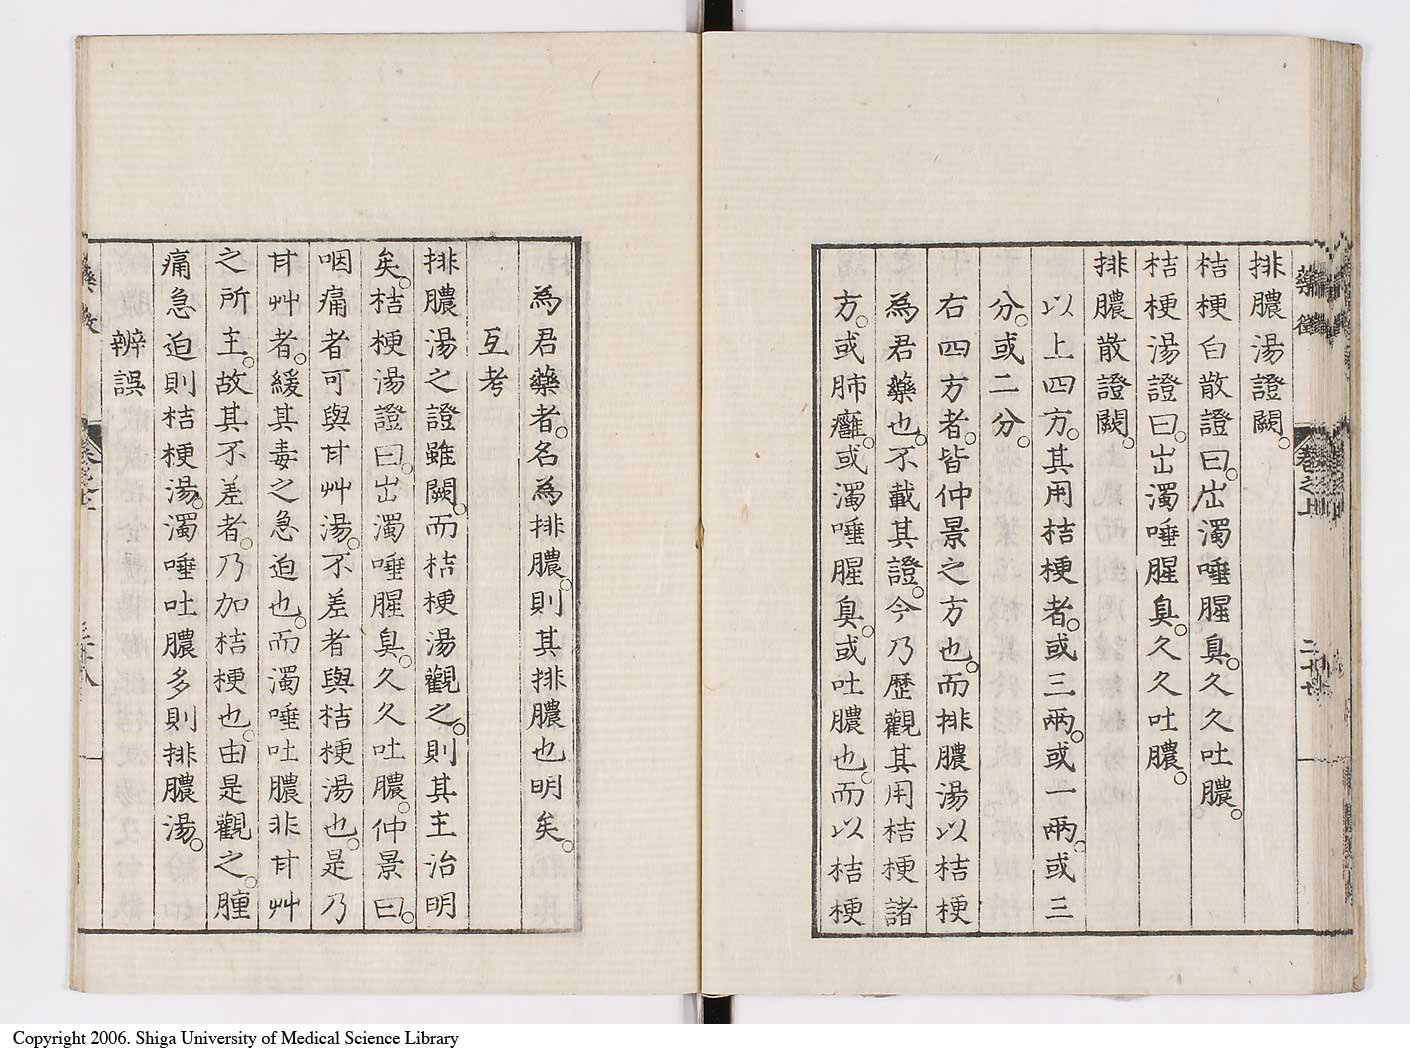 藥徵
卷之上
二十七
排膿湯證闕。
桔梗白散證曰。出濁唾腥臭。久久吐膿。
桔梗湯證曰。出濁唾腥臭。久久吐膿。
排膿散證闕。
以上四方。其用桔梗者。或三兩。或一兩。或三
分。或二分。
右四方者。皆仲景之方也。而排膿湯以桔梗
為君藥也。不載其證。今乃歷觀其用桔梗諸
方。或肺癰。或濁唾腥臭。或吐膿也。而以桔梗
為君藥者。名為排膿。則其排膿也明矣。
互考
排膿湯之證雖闕。而桔梗湯觀之。則其主治明
矣。桔梗湯證曰。出濁唾腥臭。久久吐膿。仲景曰。
咽痛者可與甘艸湯。不差者與桔梗湯也。是乃
甘艸者。緩其毒之急迫也。而濁唾吐膿非甘艸
之所主。故其不差者。乃加桔梗也。由是觀之。腫
痛急迫則桔梗湯。濁唾吐膿多則排膿湯。
辨誤
Copyright 2006. Shiga University of Medical Science Library